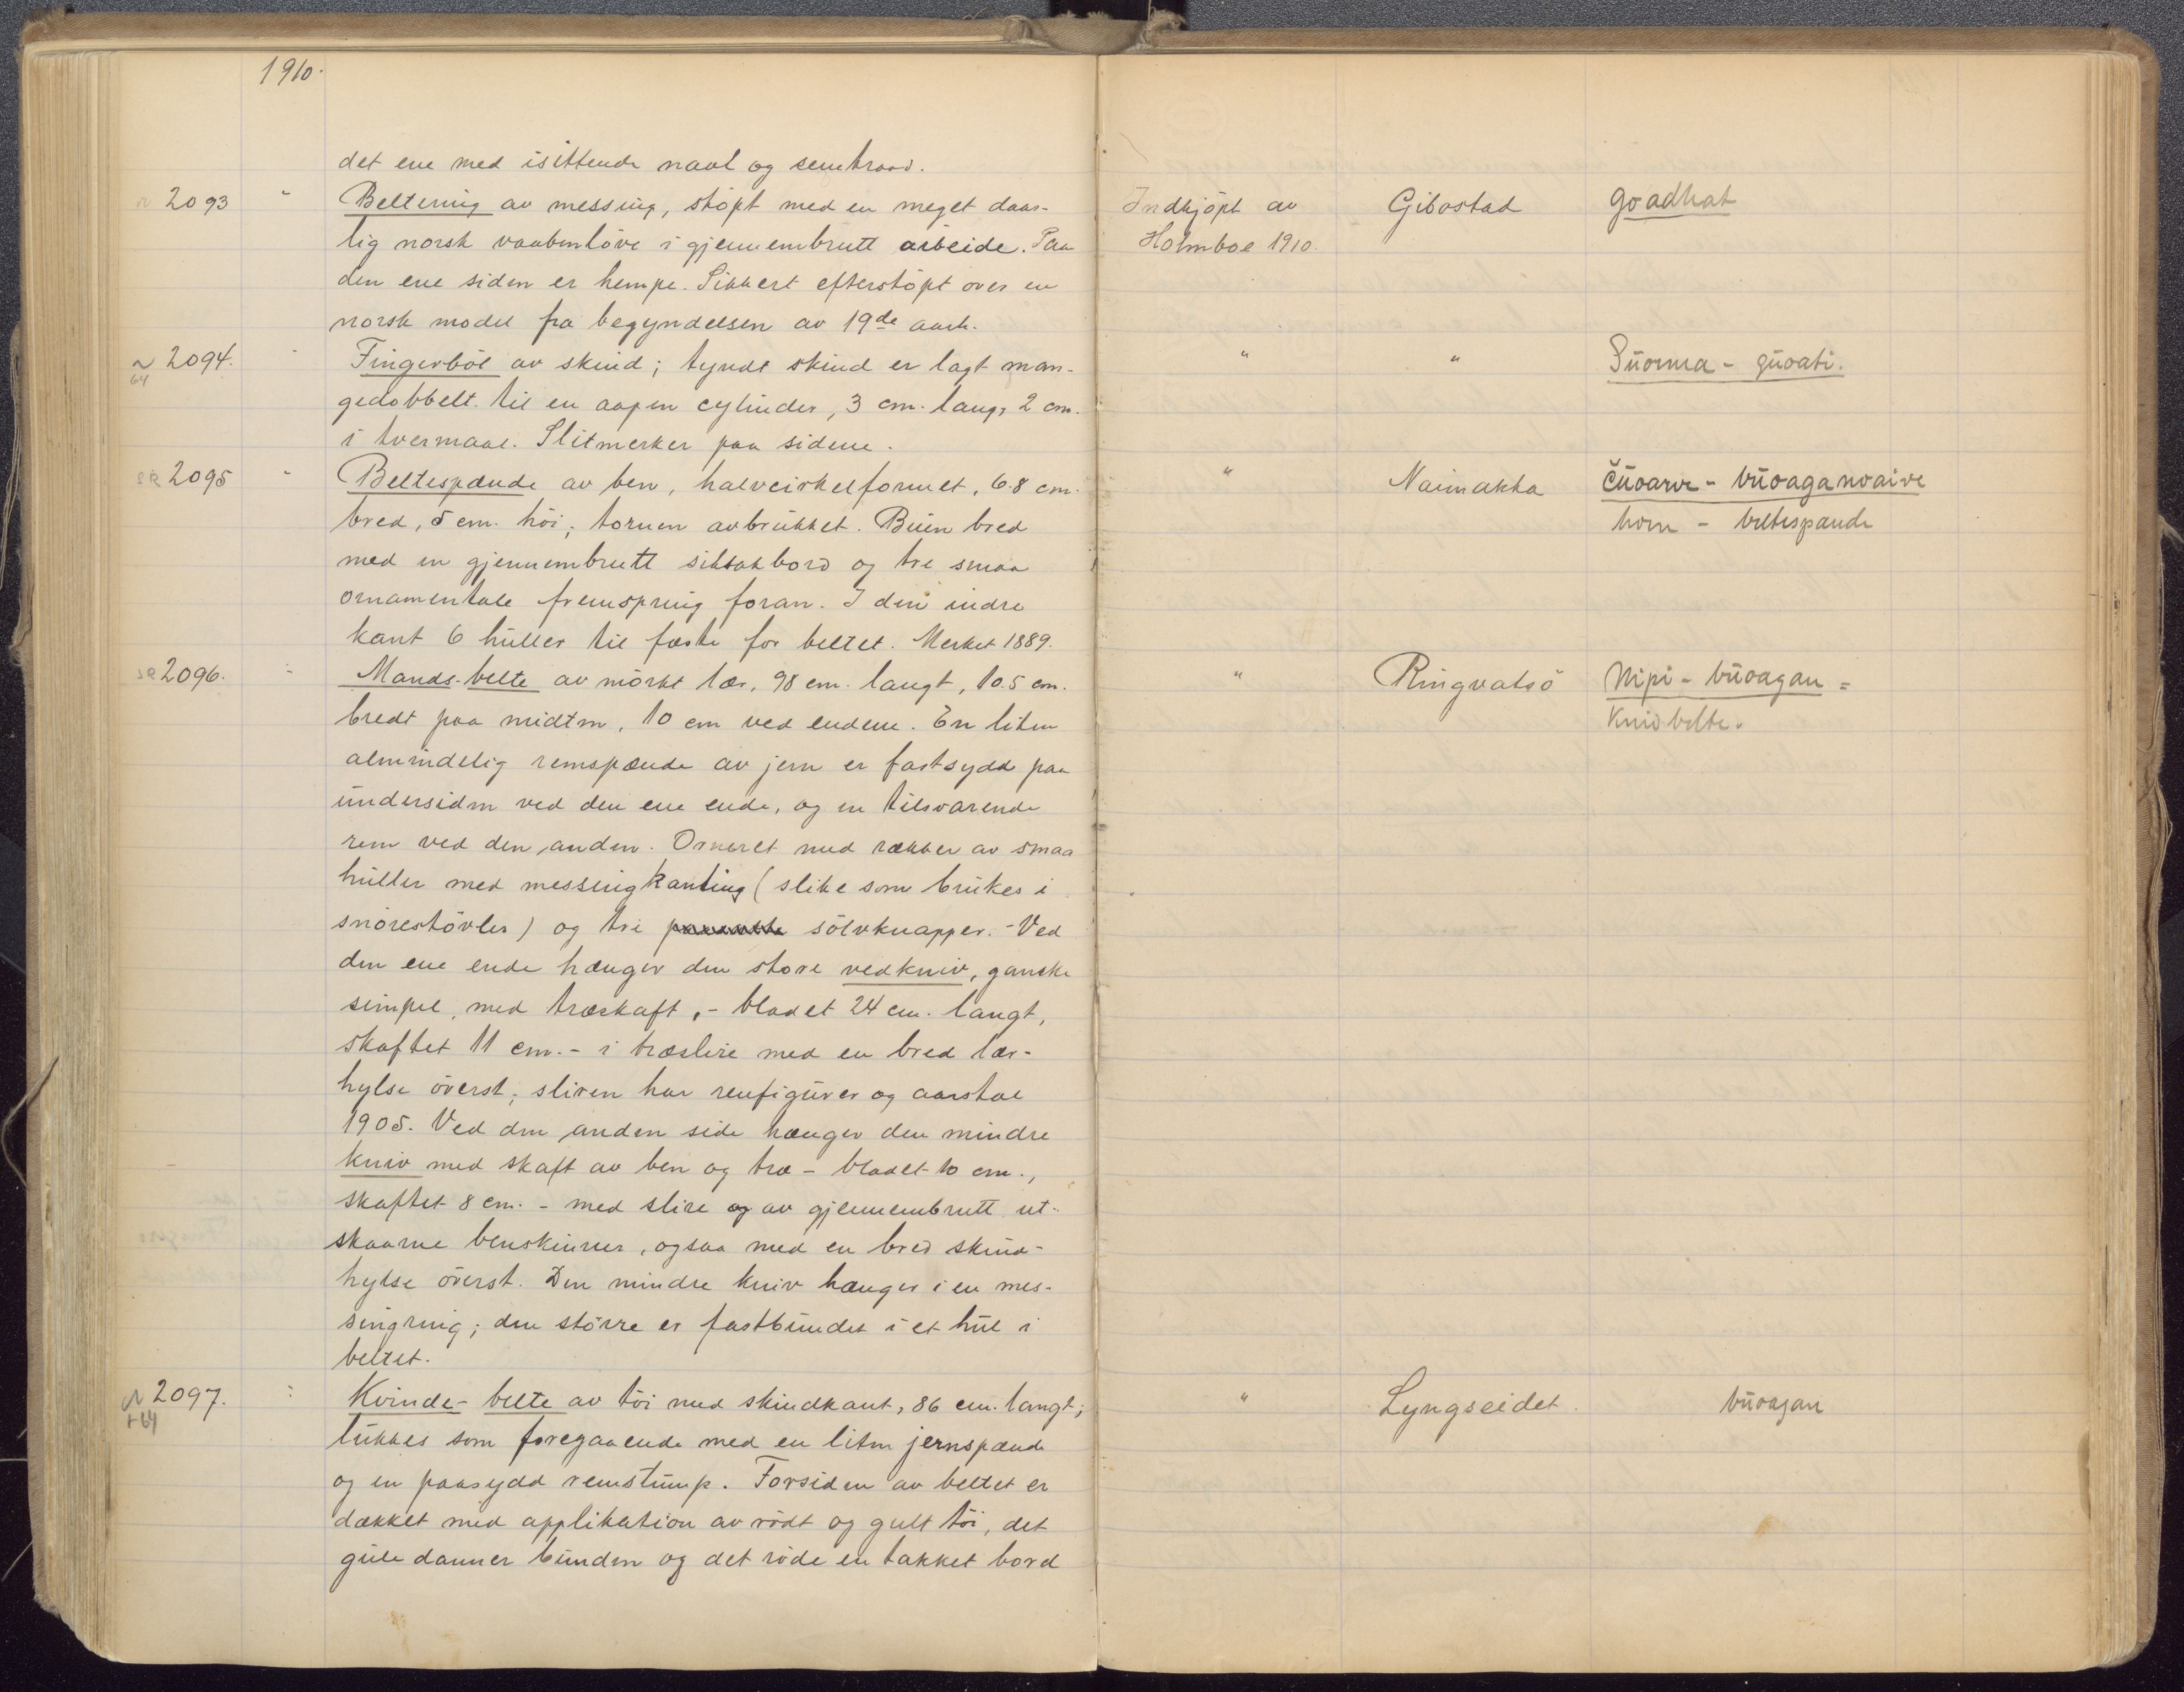 1910.
det ene med isittende naal og senetraad.
N 2093 " Beltering av messing, støpt med en meget daar- Indkjöpt av Gibostad goadhat
lig norsk vaabenlöve i gjennembrutt arbeide. Paa Holmboe 1910.
den ene siden er hempe. Sikkert efterstöpt over en
norsk model fra begyndelsen av 19de aarh.
N 2094. " Fingerböl av skind; tyndt skind er lagt man- " " Suorma - guoati.
64 gedobbelt til en aapen cylinder, 3 cm. lang, 2 cm.
i tvermaal. Slitmerker paa sidene.
SR 2095 " Beltespænde av ben, halvcirkelformet, 6.8 cm. " Naimakka čuoarve - buoaganvaive
bred, 5 cm. höi; tornen avbrukket. Buen bred horn - beltespænde
med en gjennembrutt siksakbord og tre smaa
ornamentale fremspring foran. I den indre
kant 6 huller til fæste for beltet. Merket 1889.
SR 2096. " Mands-belte av mörkt lær, 98 cm. langt, 10.5 cm. " Ringvatsö Nipi - buoagan =
bredt paa midten, 10 cm ved endene. En liten Knivbelte.
almindelig remspænde av jern er fastsydd paa
undersiden ved den ene ende, og en tilsvarende
rem ved den anden. Orneret med rækker av smaa
huller med messingkanting (slike som brukes i
snörestövler) og tre sölvknapper. - Ved
den ene ende hænger den store vedkniv, ganske
simpel, med træskaft, - bladet 24 cm. langt,
skaftet 11 cm. - i træslire med en bred lær-
hylse överst; sliren har renfigurer og aarstal
1905. Ved den anden side hænger den mindre
kniv med skaft av ben og træ - bladet 10 cm.,
skaftet 8 cm. - med slire og av gjennembrutt ut-
skaarne benskinner, ogsaa med en bred skind-
hylse överst. Den mindre kniv hænger i en mes-
singring; den större er fastbundet i et hul i
beltet.
N 2097. " Kvinde-belte av töi med skindkant, 86 cm. langt; " Lyngseidet. buoagan
+64 lukkes som foregaaende med en liten jernspænde
og en paasydd remstump. Forsiden av beltet er
dækket med applikation av rödt og gult töi, det
gule danner bunden og det röde en takket bord